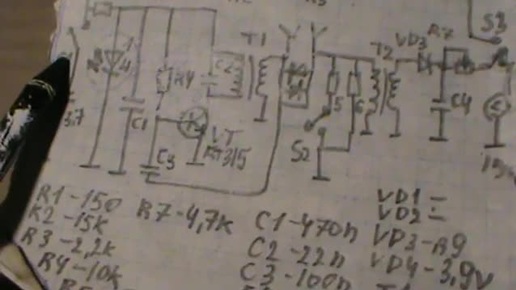 T1
T2
VD3
R7
S3
C2
R4
4
C1
C4
VT
KT315
5
6
3,7
C3
S2
R1-150
R2-15k
R7-4,7k
C1-470n
VD1=
VD2=
R3-2,2k
C2-22n
VD3-Д9
R4-10k
C3-100n
VD4-3,9V